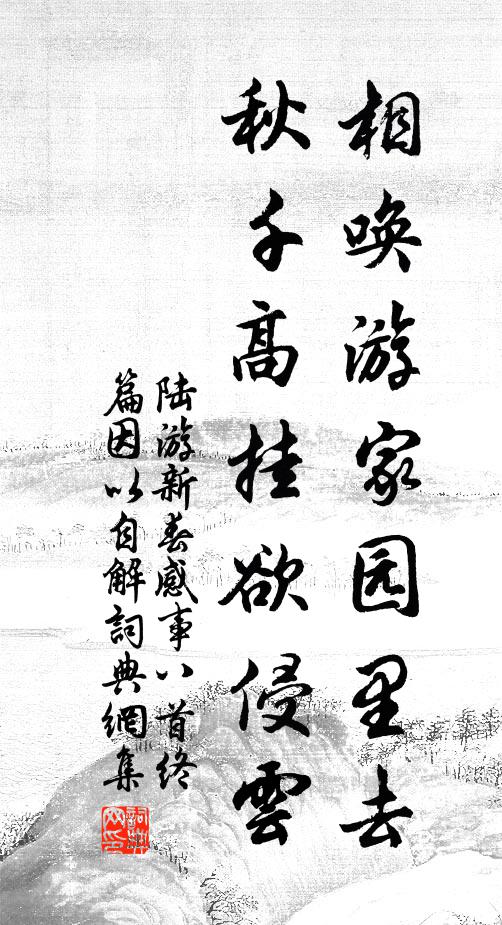 相唤游家园里去
秋千高挂欲侵雲
陆游新春感事八首终
篇因以自解詞典網集
詞典
网印